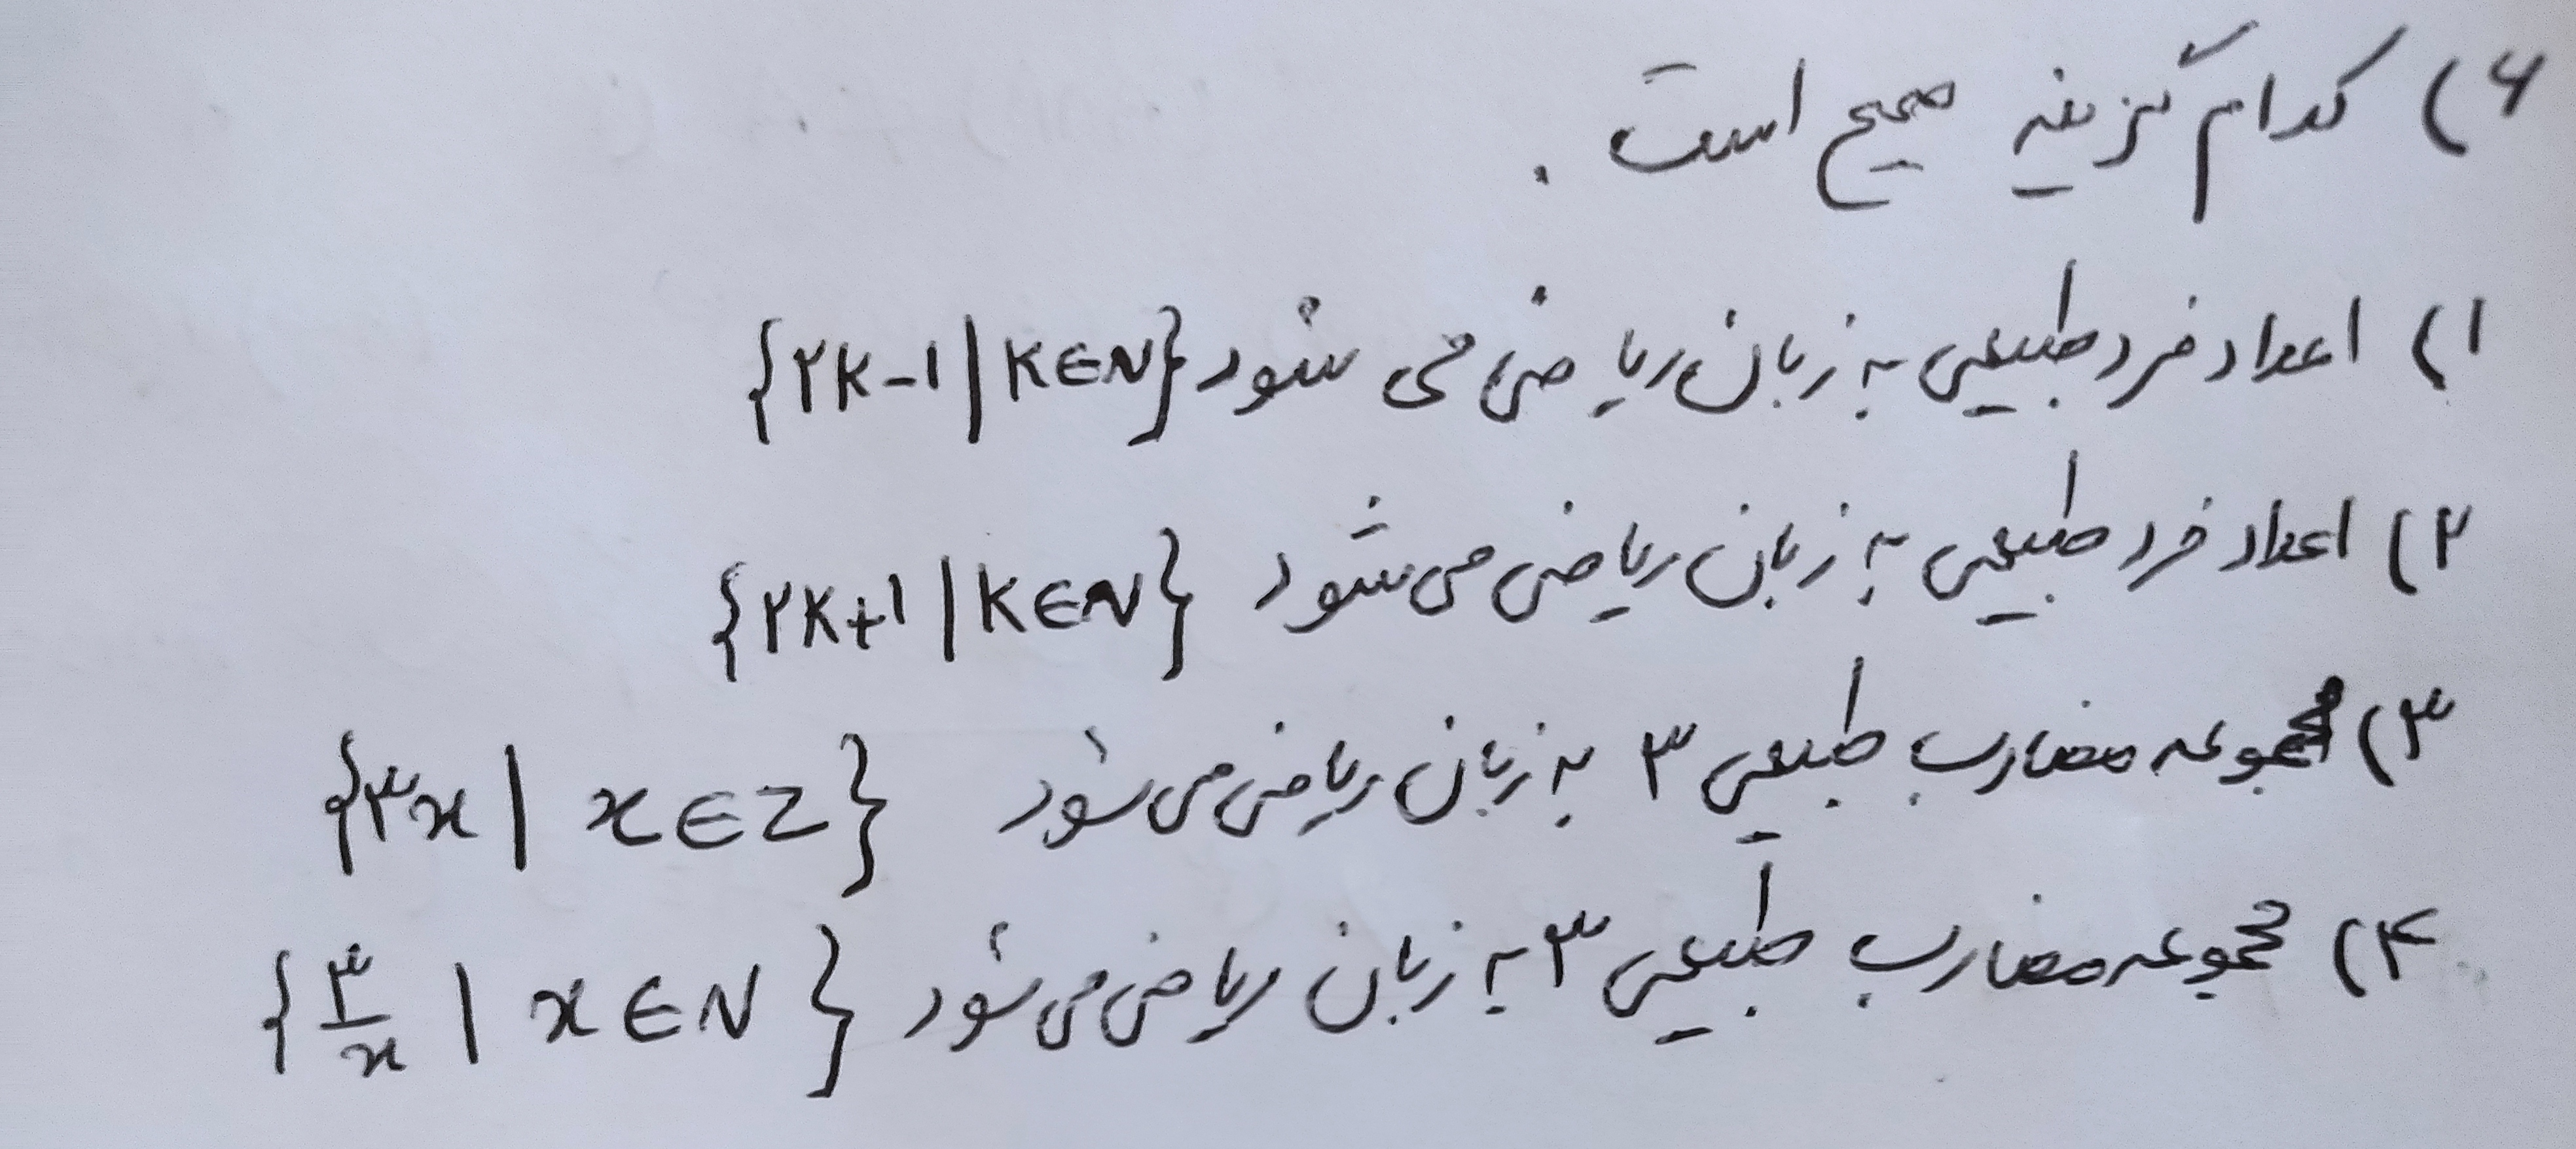 ۶) کدام گزینه صحیح است .
۱) اعداد فرد طبیعی به زبان ریاضی می شود {۲K-۱ | K∈N}
۲) اعداد فرد طبیعی به زبان ریاضی می شود {۲K+۱ | K∈N}
۳) مجموعه مضارب طبیعی ۳ به زبان ریاضی می شود {۳x | x∈Z}
۴) مجموعه مضارب طبیعی ۳ به زبان ریاضی می شود {۳/x | x∈N}